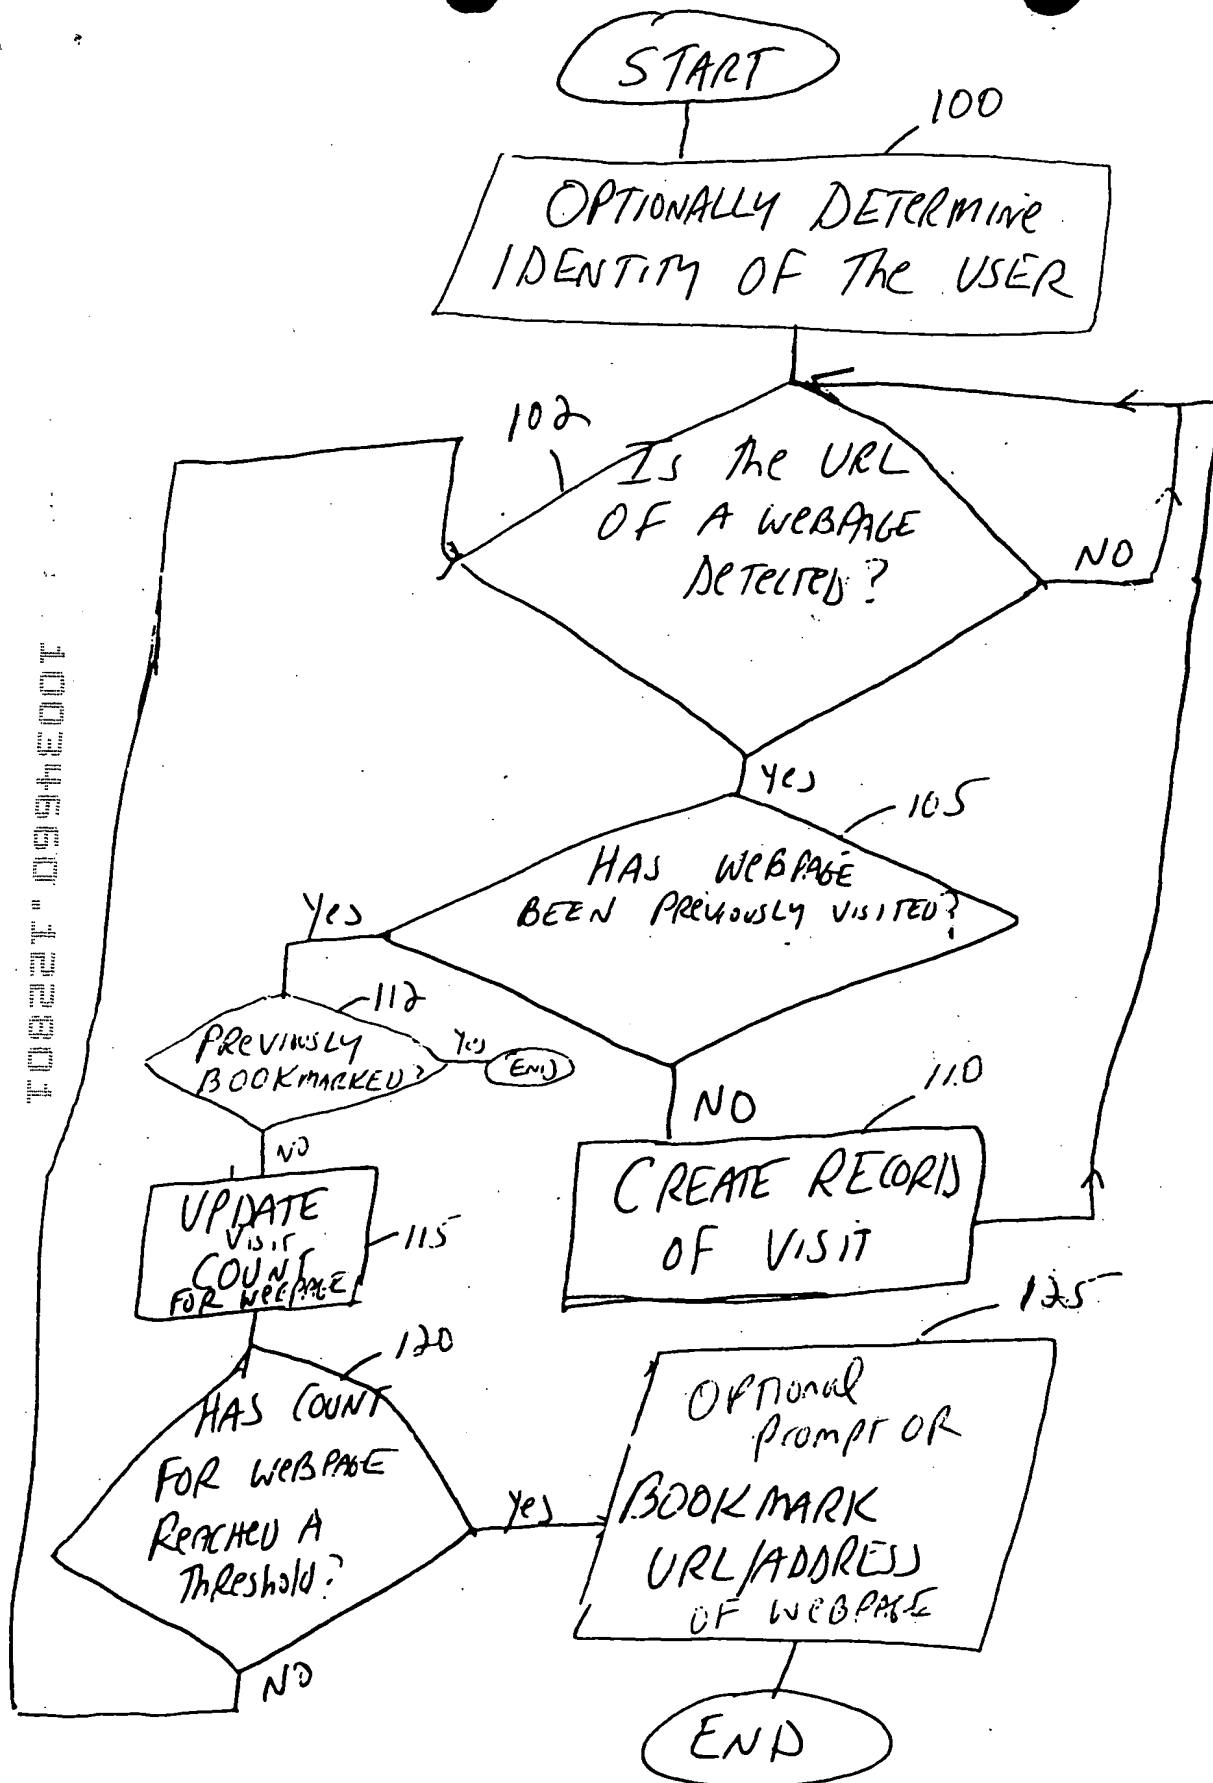 START
100
OPTIONALLY DETERMINE
IDENTITY OF The USER
102
Is The URL
OF A WEBPAGE
DETECTED?
NO
Yes
105
HAS WEBPAGE
BEEN PREVIOUSLY VISITED?
Yes
112
PREVIOUSLY
BOOKMARKED?
Yes
END
NO
NO
110
CREATE RECORD
OF VISIT
UPDATE
VISIT
COUNT
FOR WEBPAGE
115
125
120
HAS COUNT
FOR WEBPAGE
REACHED A
Threshold?
Yes
NO
OPTIONAL
Prompt OR
BOOKMARK
URL/ADDRESS
OF WEBPAGE
END
10034660.122801